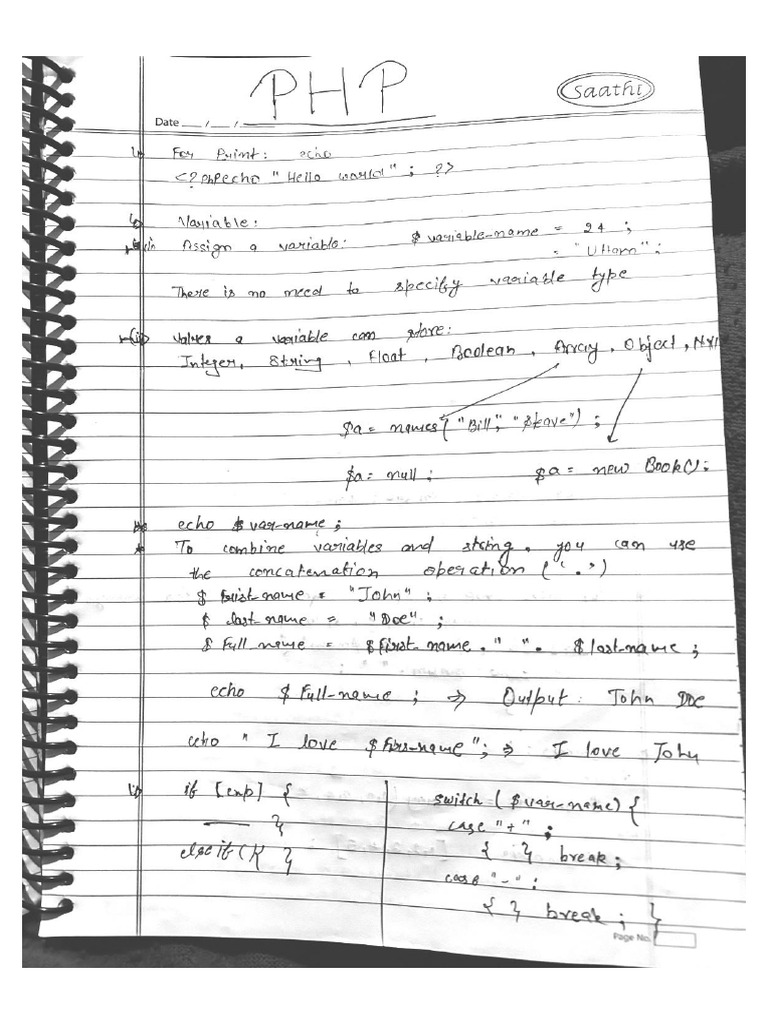 PHP
saathi
Date __/__/____
For Print: echo
<?php echo "Hello world" ; ?>
Variable:
(i) Assign a variable: $ variable-name = 24 ;
= "Uttam" ;
There is no need to specify variable type
(ii) Values a variable can store:
Integer, String, Float, Boolean, Array, Object, Null
$a = names ("Bill", "Steave") ;
$a = null ; $a = new Book() ;
echo $ var-name ;
* To combine variables and string, you can use
the concatenation operation ('.')
$ first-name = "John" ;
$ last-name = "Doe" ;
$ Full_name = $first-name . " " . $last-name ;
echo $ Full-name ; ⇒ Output: John Doe
echo " I love $first-name" ; ⇒ I love John
if [exp] {
}
else if ( ) { }
switch ($var-name) {
case "+" ;
{ } break ;
case "-" :
{ } break ; }
Page No.